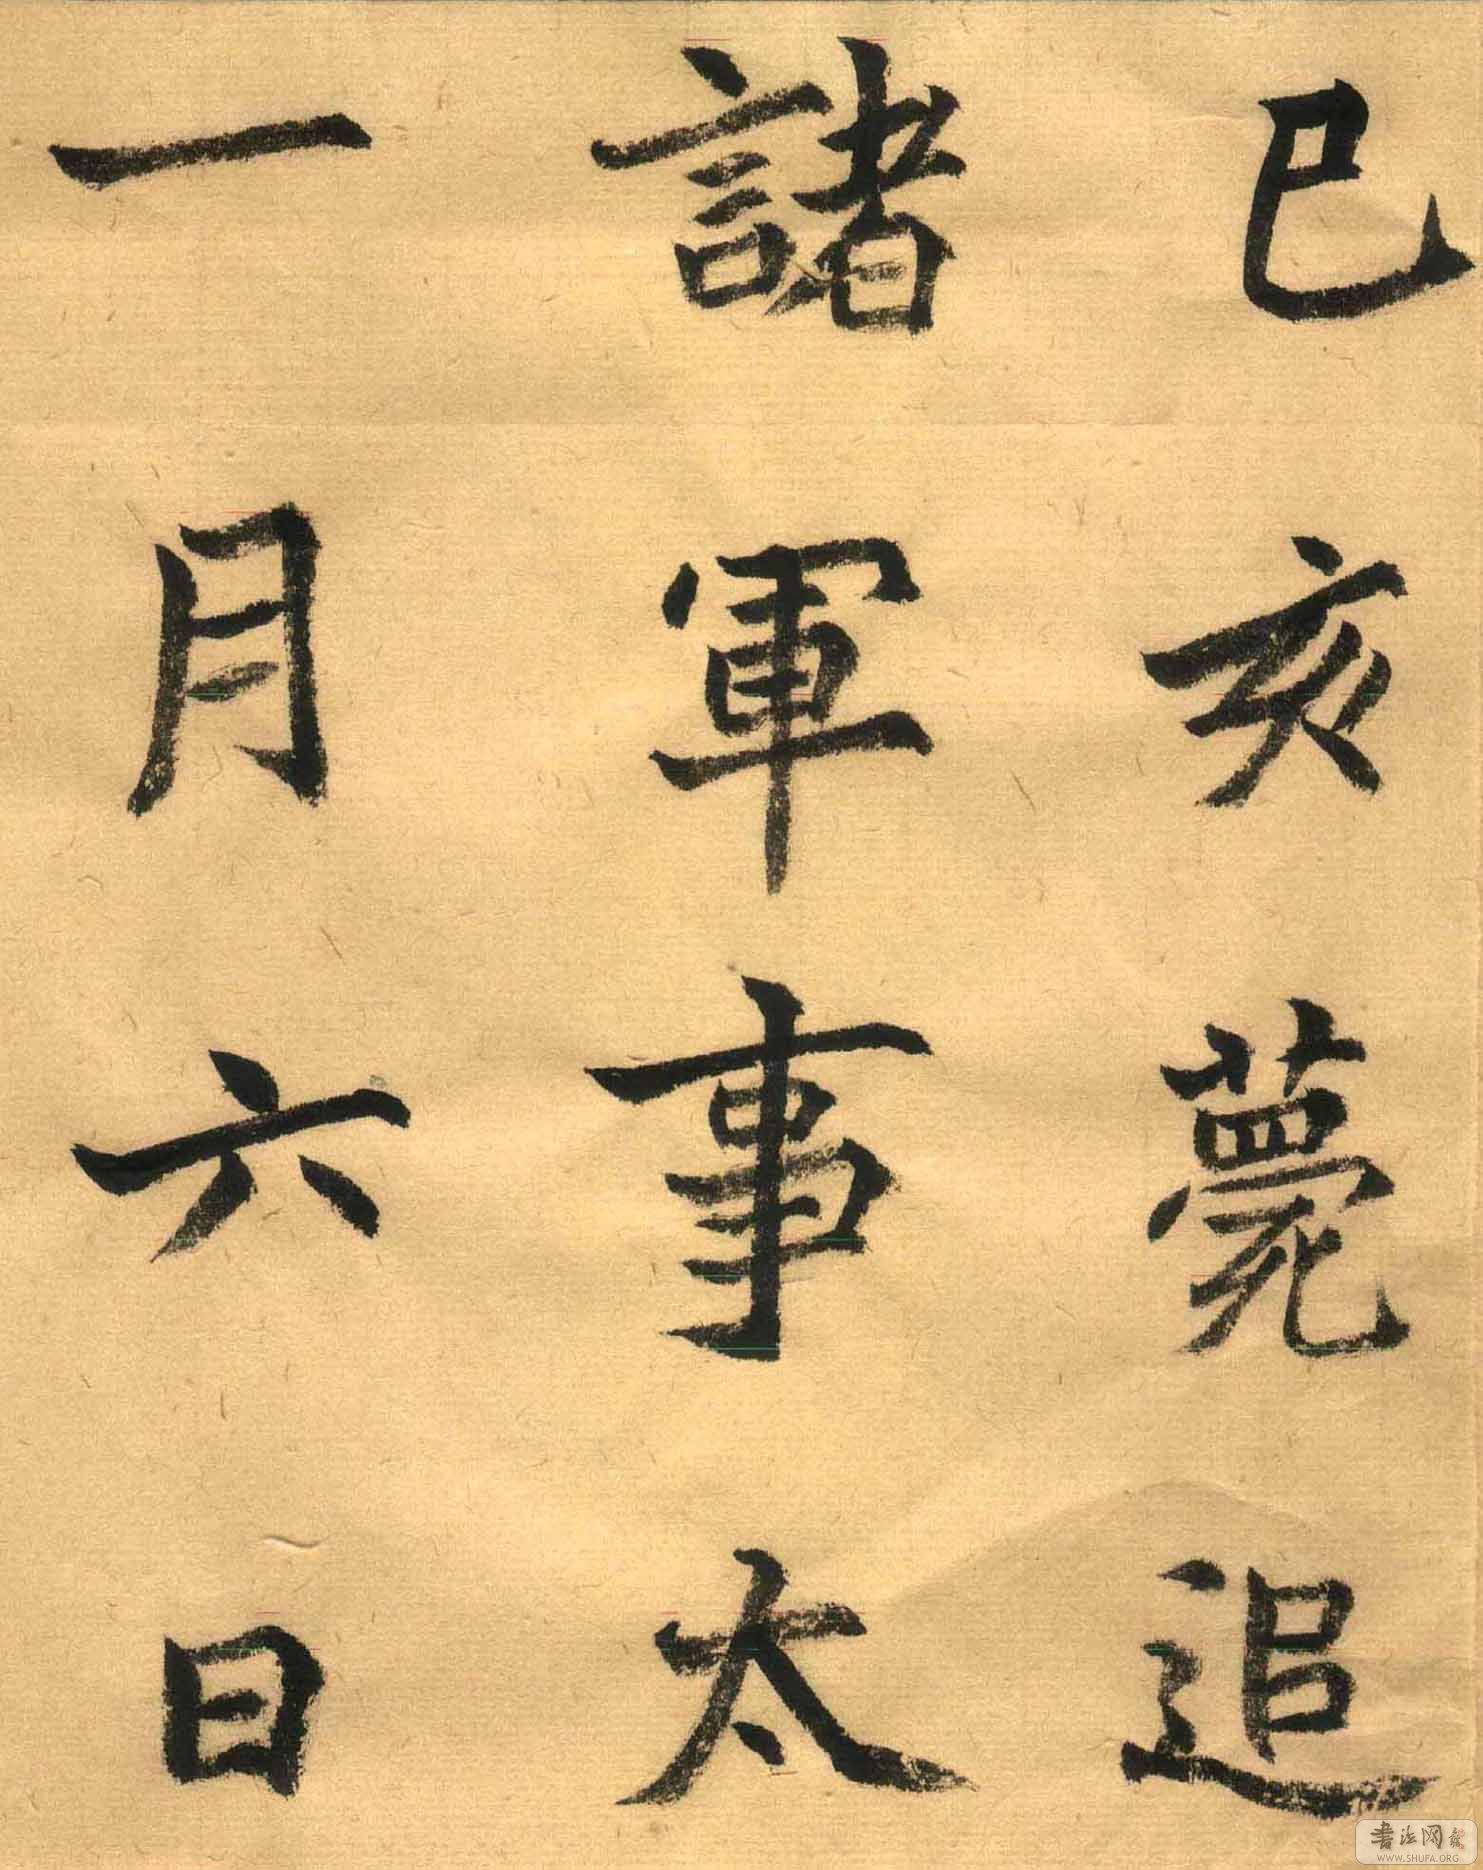 已亥薨追
諸軍事太
一月六日
書法网
WWW.SHUFA.ORG